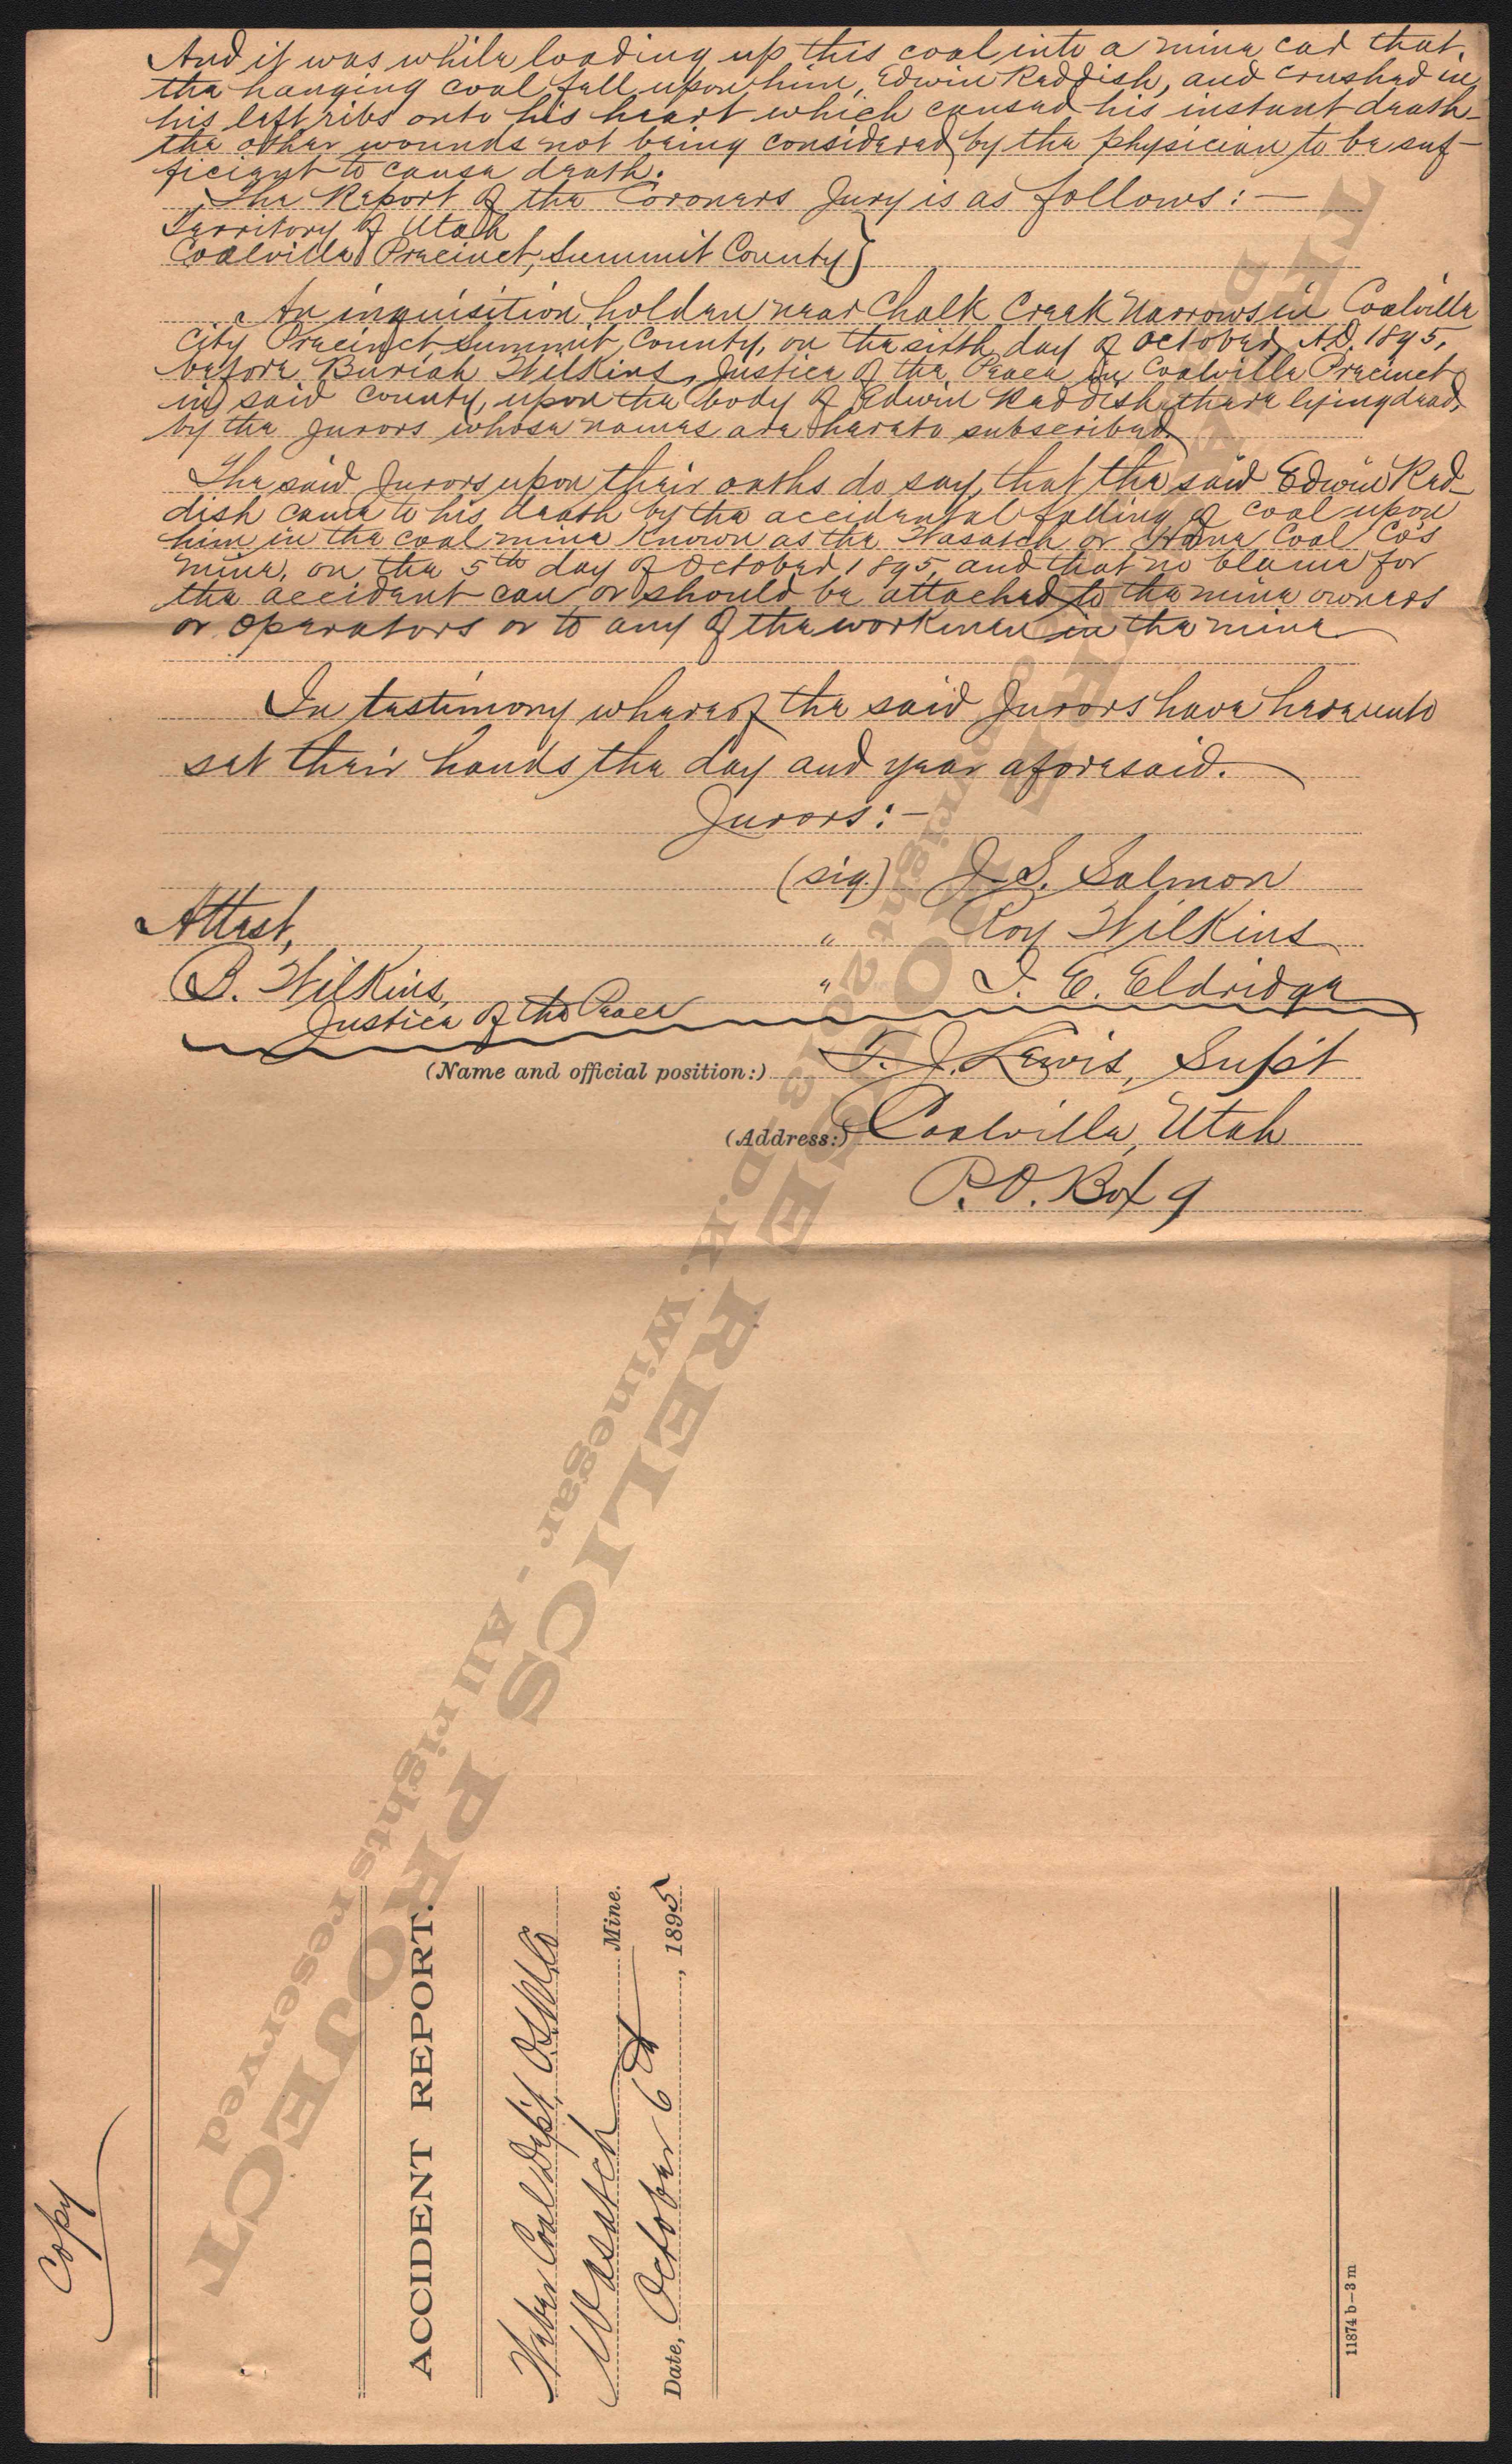 And it was while loading up this coal into a mine car that
the hanging coal fell upon him, Edwin Reddish, and crushed in
his left ribs onto his heart which caused his instant death
the other wounds not being considered by the physician to be suf-
ficient to cause death.
The Report of the Coroners Jury is as follows: —
Territory of Utah
Coalville Precinct, Summit County }
An inquisition holden near Chalk Creek Narrows in Coalville
City Precinct Summit County, on the sixth day of October A.D. 1895,
before Buriah Wilkins, Justice of the Peace in Coalville Precinct
in said County, upon the body of Edwin Reddish there lying dead,
by the Jurors whose names are hereto subscribed.
The said Jurors upon their oaths do say, that the said Edwin Red-
dish came to his death by the accidental falling of coal upon
him in the coal mine known as the Wasatch or Home Coal Co's
mine, on the 5th day of October 1895, and that no blame for
the accident can or should be attached to the mine owners
or operators or to any of the workmen in the mine
In testimony whereof the said Jurors have hereunto
set their hands the day and year aforesaid.
Jurors:-
(sig.) J. S. Salmon
Attest,
" Roy Wilkins
B. Wilkins,
" I. E. Eldridge
Justice of the Peace
(Name and official position:) T. J. Lewis, Sup't
(Address:) Coalville, Utah
P.O. Box 9
THE
PROJECT
RELICS PROJECT
Copyright 2013 D.K. Winegar - All rights reserved
Copy
ACCIDENT REPORT.
Weber Coal Dep't,
Wasatch Mine.
Date, October 6th, 1895
11874 b—3 m